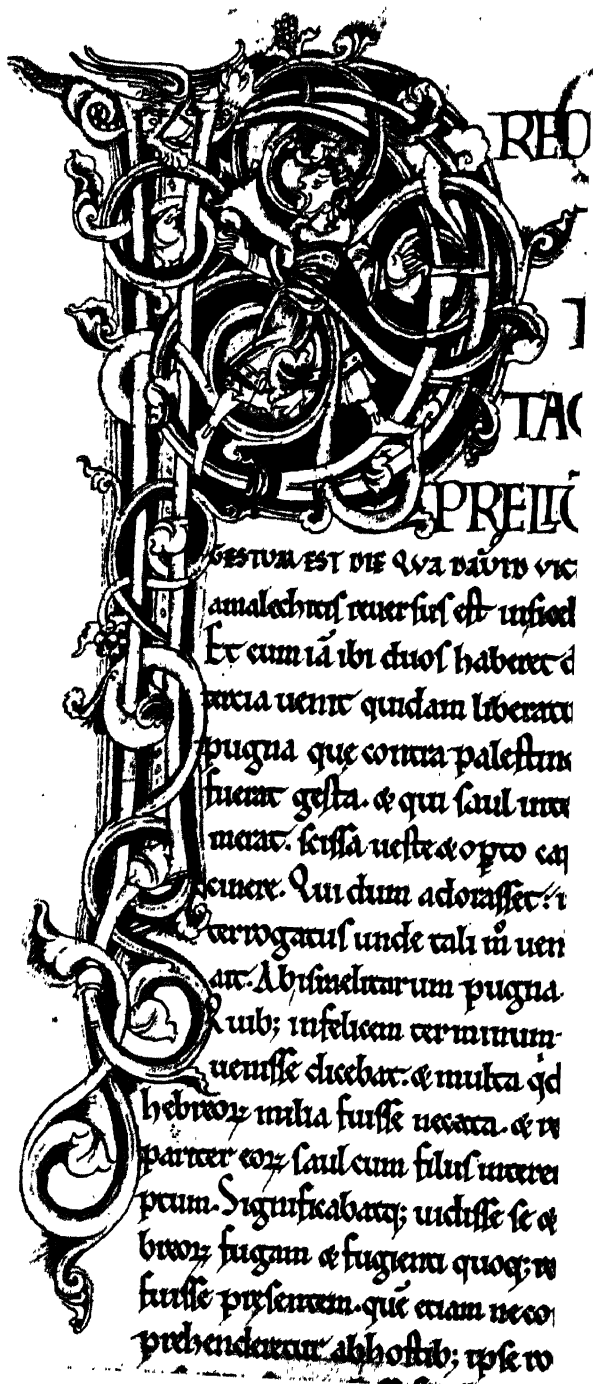 PRED
T
TAC
PRELIŪ
GESTUM EST DIE QUA DAVID VIC
amalechitis reuersus est insicel
Et cum iā ibi duos haberet d
tercia uenit quidam liberatu
pugna que contra palestin
fuerat gesta. & qui saul inte
merat. scissa ueste & opto cap
cinere. Qui dum adorasset: i
terrogatus unde tali m̊ uen
ait. Abismelitarum pugna.
Quib; infelicem terminum
uenisse dicebat. & multa qd
hebreoꝝ milia fuisse necata. & re
pariter eoꝝ saul cum filiis interē
ptum. Significabatq; uidisse se &
breoꝝ fugam & fugienti quoq; re
fuisse pręsentem. quē etiam ne co
prehenderetur abhostib; ipse ro